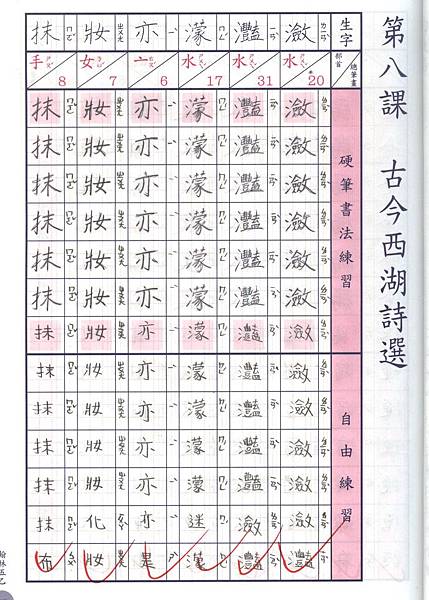 第八課 古今西湖詩選
生字 部首 總筆畫 硬筆書法練習 自由練習
瀲 水 20 瀲 瀲 瀲 瀲 瀲 瀲 瀲 瀲 瀲 瀲 瀲 瀲 灩
灩 水 31 灩 灩 灩 灩 灩 灩 灩 灩 灩 灩 灩 瀲 灩
濛 水 17 濛 濛 濛 濛 濛 濛 濛 濛 濛 濛 濛 迷 濛
亦 亠 6 亦 亦 亦 亦 亦 亦 亦 亦 亦 亦 亦 亦 是
妝 女 7 妝 妝 妝 妝 妝 妝 妝 妝 妝 妝 妝 化 妝
抹 手 8 抹 抹 抹 抹 抹 抹 抹 抹 抹 抹 抹 抹 布
翰林五乙